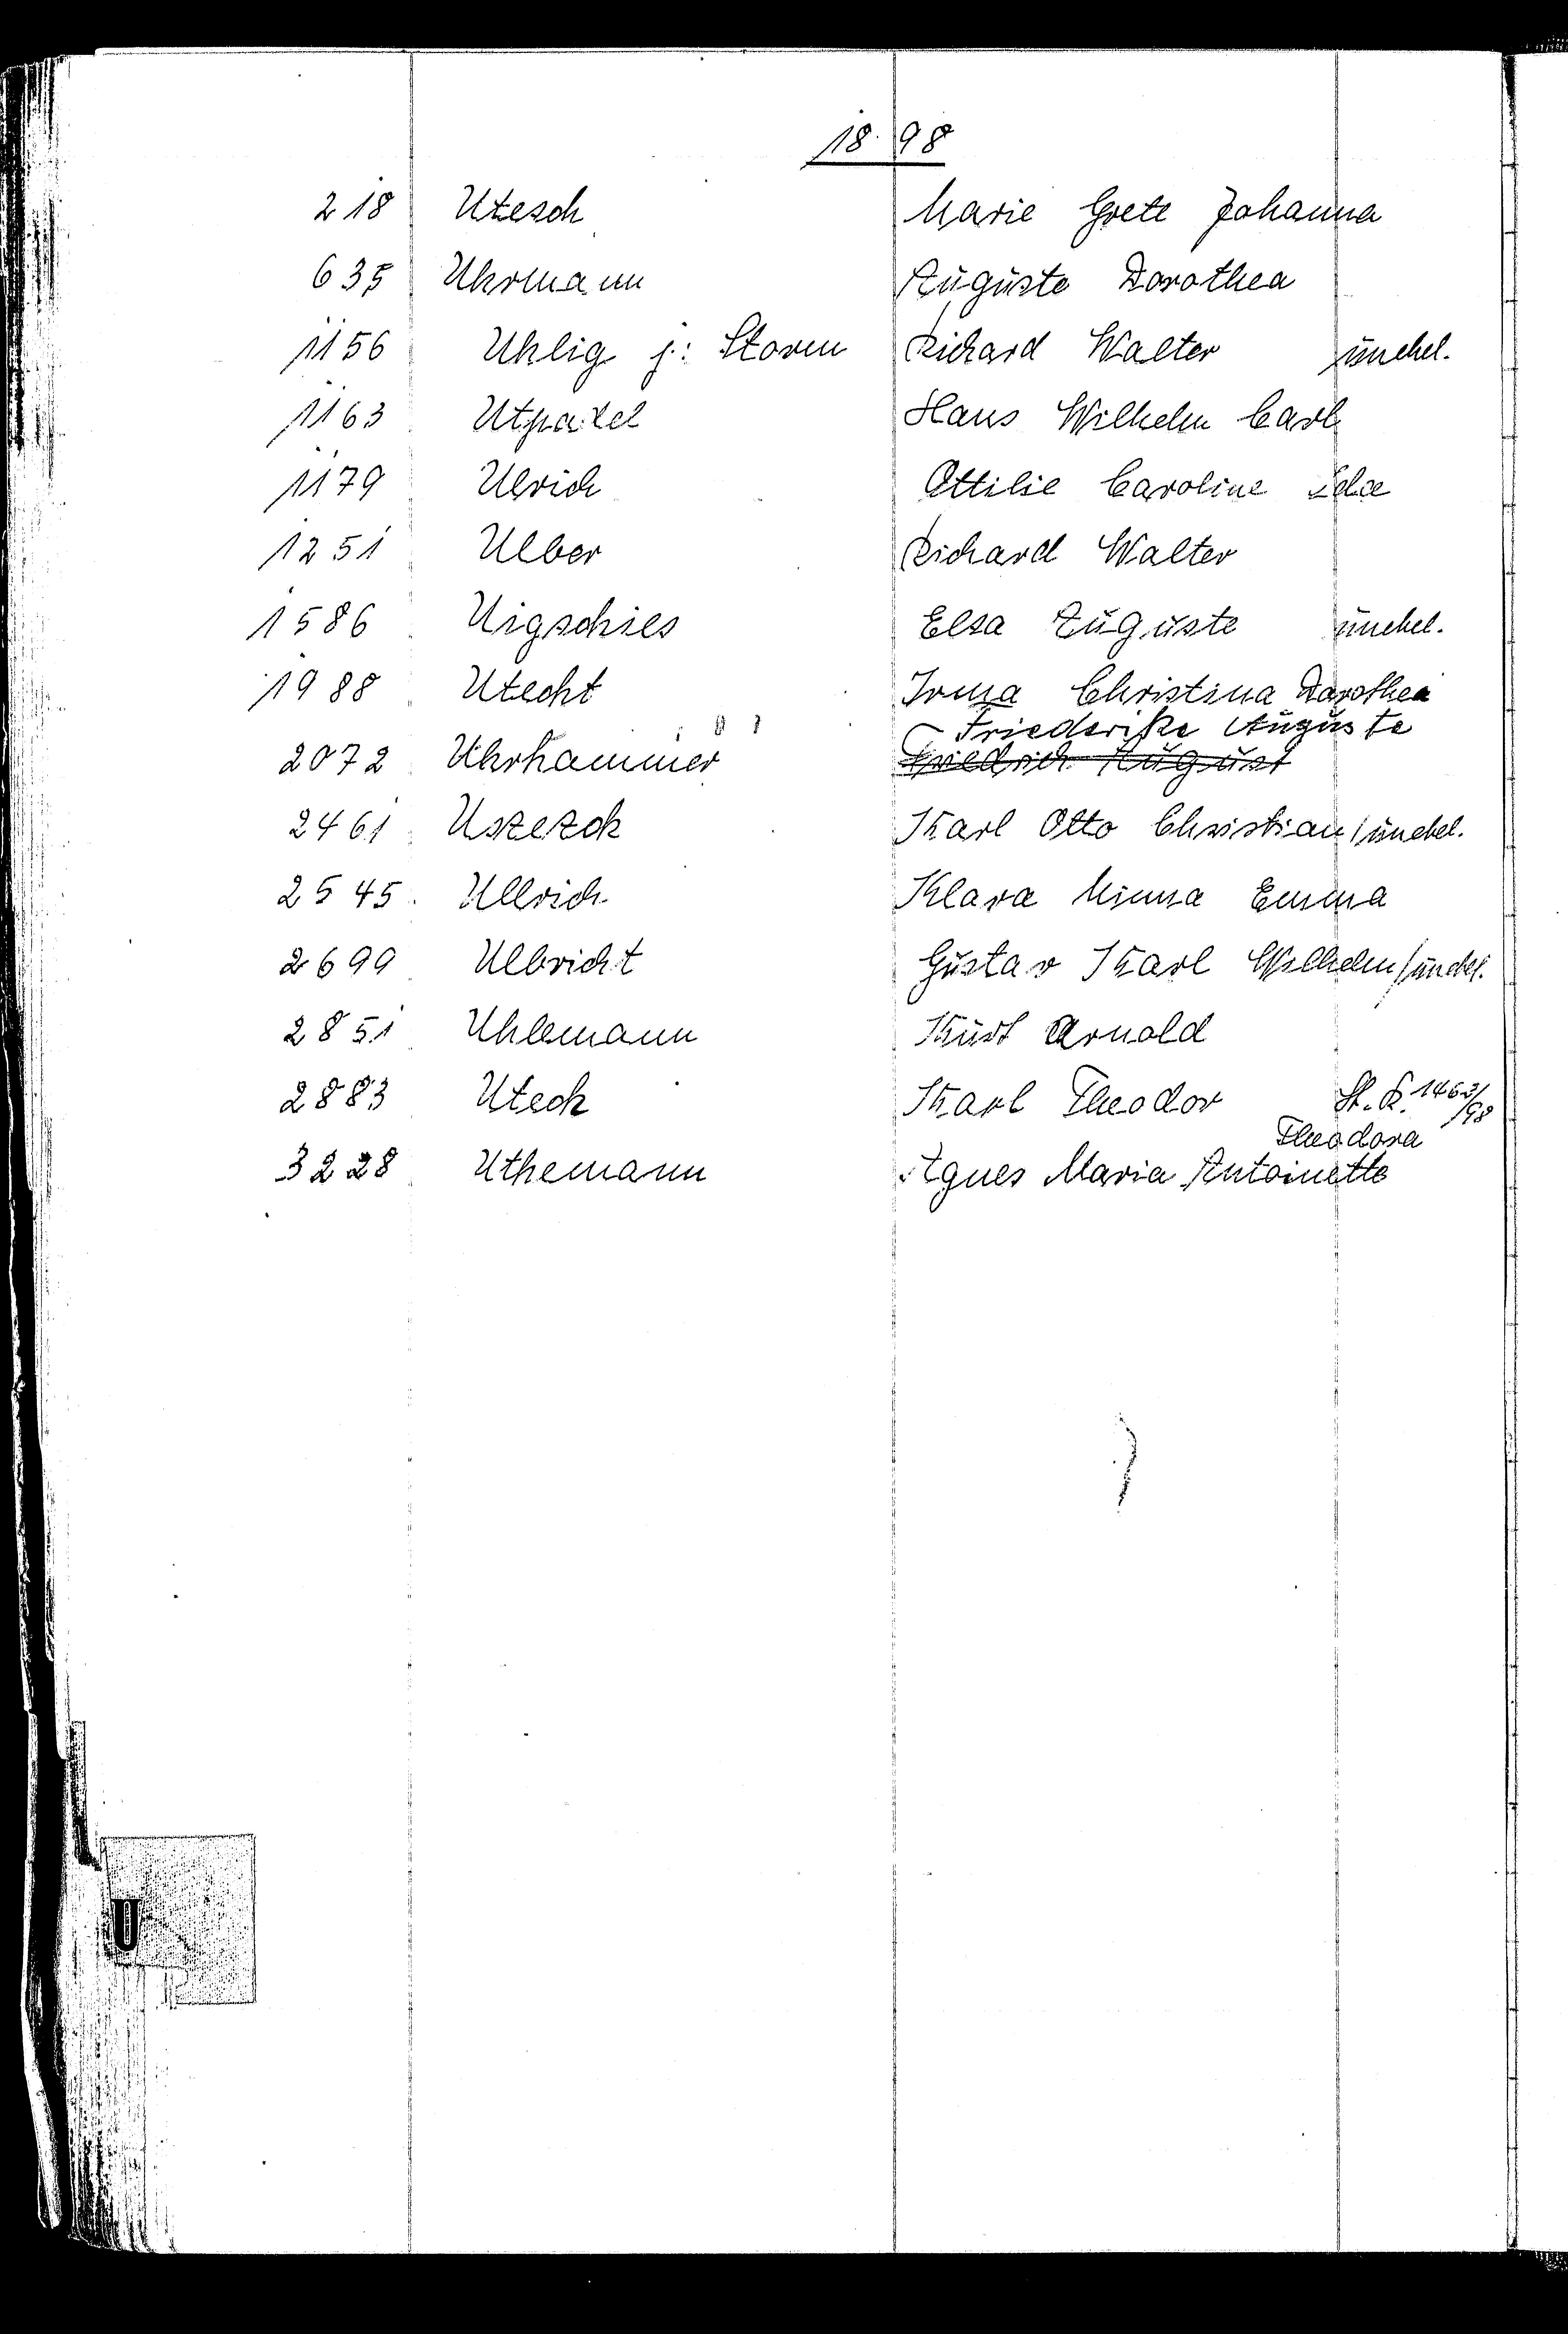 1898
218 Utesch Marie Grete Johanna
635 Uhrmann Auguste Dorothea
1156 Uhlig j: Storm Richard Walter unehel.
1163 Utpatel Hans Wilhelm Carl
1179 Ulrich Ottilie Caroline Ida
1251 Ulber Richard Walter
1586 Uigschies Elsa Auguste unehel.
1988 Utecht Irma Christina Dorothea
Friederike Auguste
2072 Uhrhammer Friedrich August
2461 Uszezck Karl Otto Christian / unehel.
2545 Ullrich Klara Minna Emma
2699 Ulbricht Gustav Karl Wilhelm / unehel.
2851 Uhlemann Kurt Arnold
2883 Uteck Karl Theodor St. R. /98
Theodora
3228 Uthemann Agnes Maria Antoinette
U